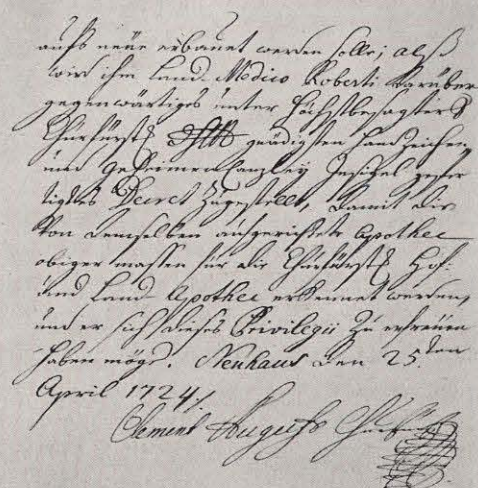 aufs neüe erbauet werden solle; alß
wird ihm Land-Medico Roberti darüber
gegenwärtiges unter Höchstbesagter
Churfürstl. gnädigsten Handzeichen
und geheimen Canzley Insigel gefer
tigtes Decret zugestellt, damit die
von demselben aufgerichtete Apothec
obiger massen für die Churfürstl. Hof-
und Land Apothec erkennet werden,
und er sich dieses Privilegii zu erfreuen
haben möge. Neuhaus den 25.ten
April 1724
Clement August Churfürst